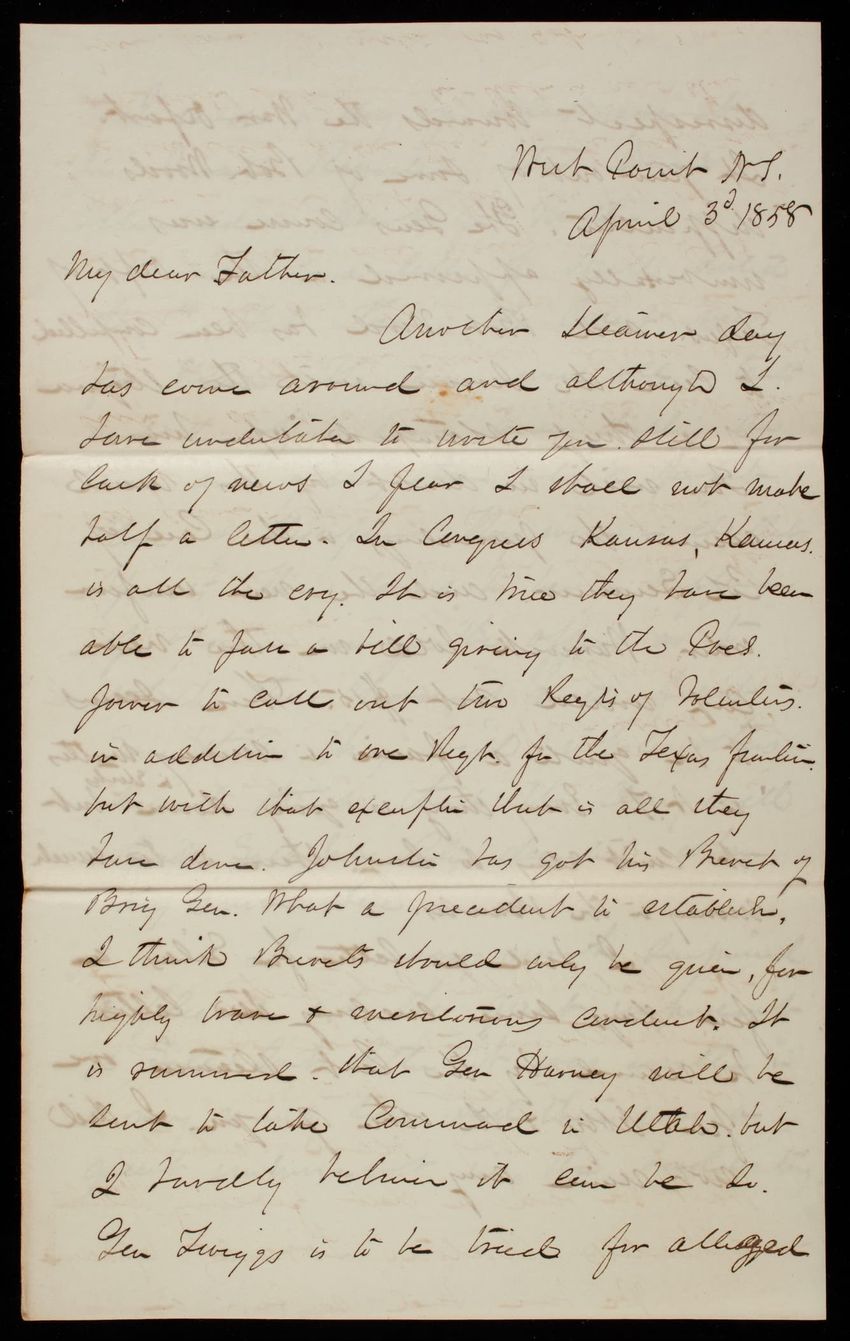 West Point N.Y.
April 3d 1858
My dear Father.
Another steamer day
has come around and although I
have undertaken to write you still for
lack of news I fear I shall not make
half a letter. In Congress Kansas, Kansas.
is all the cry. It is true they have been
able to pass a bill giving to the Pres.
power to call out two Regts of Volunteers.
in addition to one Regt. for the Texas frontier.
but with that exception that is all they
have done. Johnston has got his Brevet of
Brig Gen. What a precedent to establish,
I think Brevets should only be given, for
highly brave & meritorious conduct. It
is rumored. that Gen Harney will be
sent to take Command in Utah. but
I hardly believe it can be so.
Gen Twiggs is to be tried for alleged